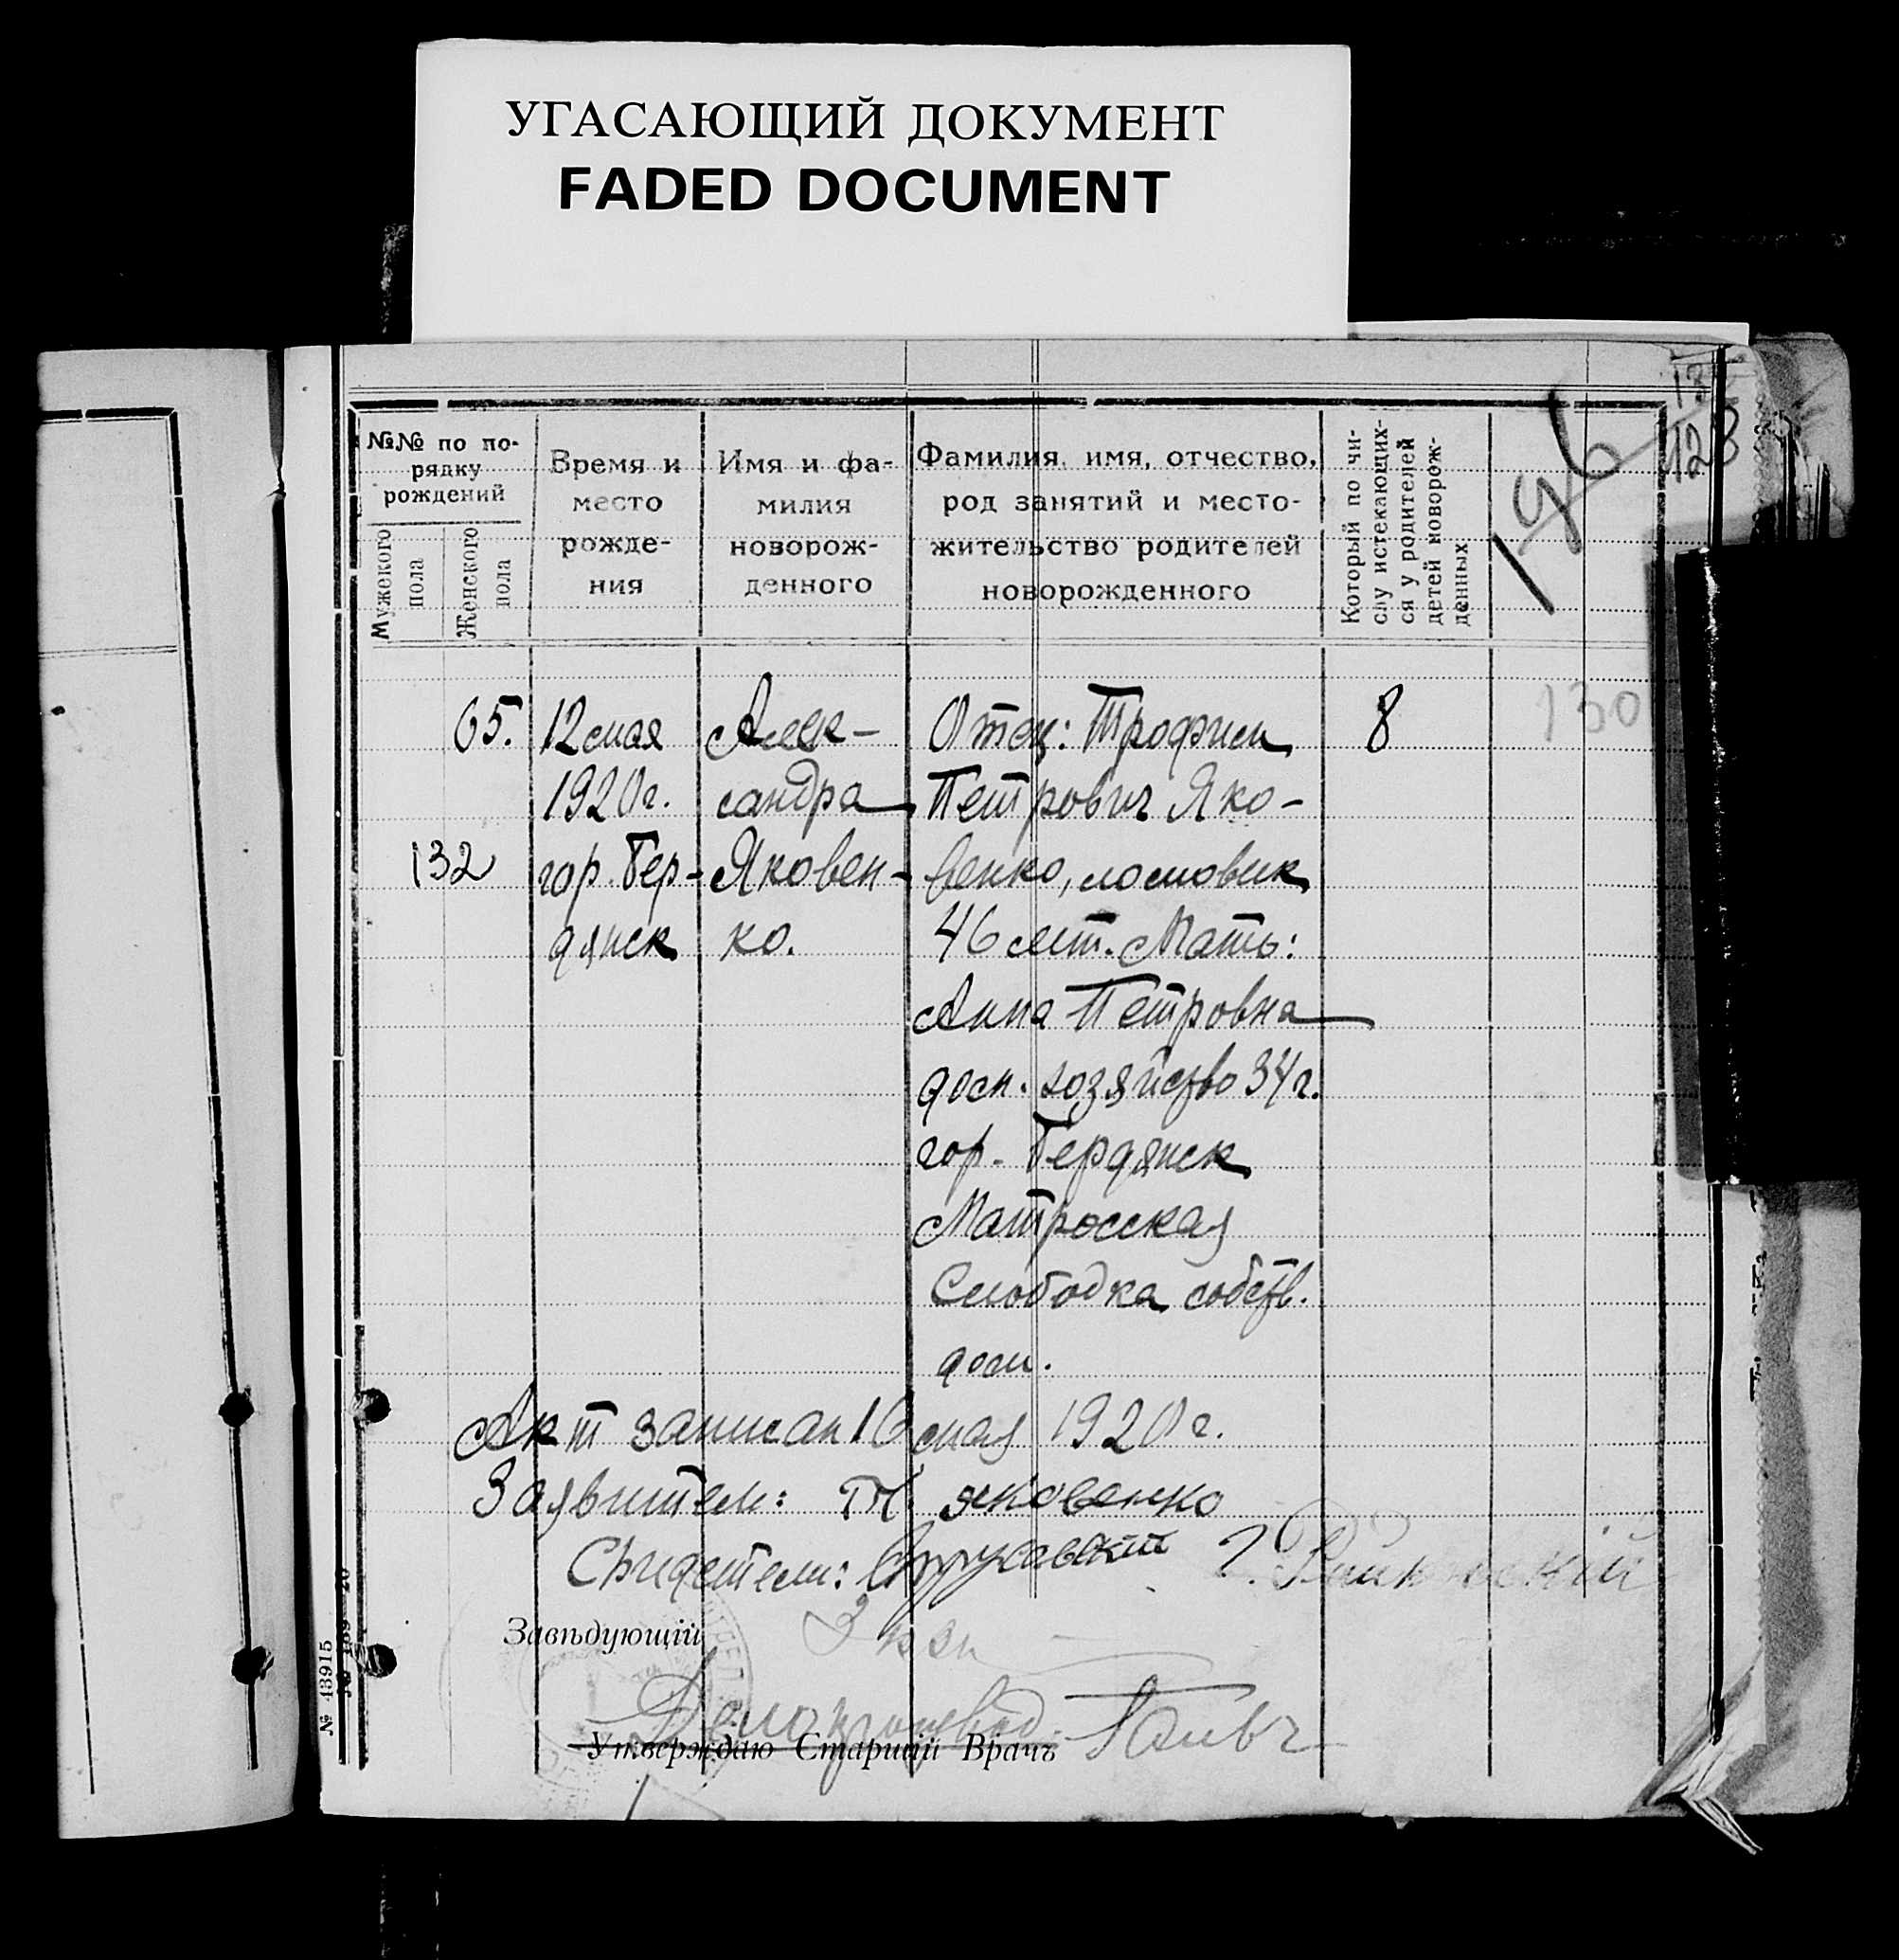 УГАСАЮЩИЙ ДОКУМЕНТ
FADED DOCUMENT
№№ по по-
рядку
рождений
Мужского
пола
Женского
пола
Время и
место
рожде-
ния
Имя и фа-
милия
новорож-
денного
Фамилия, имя, отчество,
род занятий и место-
жительство родителей
новорожденного
Который по чи-
слу истекающих-
ся у родителей
детей новорож-
денных
146
128
65.
132
12 мая
1920 г.
гор. Бер-
дянск
Алек-
сандра
Яковен-
ко.
Отец: Трофим
Петрович Яко-
венко,
46 лет. Мать:
Анна Петровна
дом. хозяйство 34 г.
гор. Бердянск
Матросская
Слободка собств.
дом.
8
130
Акт записан 16 мая 1920 г.
Заявители: Яковенко
Свидетели:
Завѣдующій
Утверждаю Старшій Врачъ
№ 43915